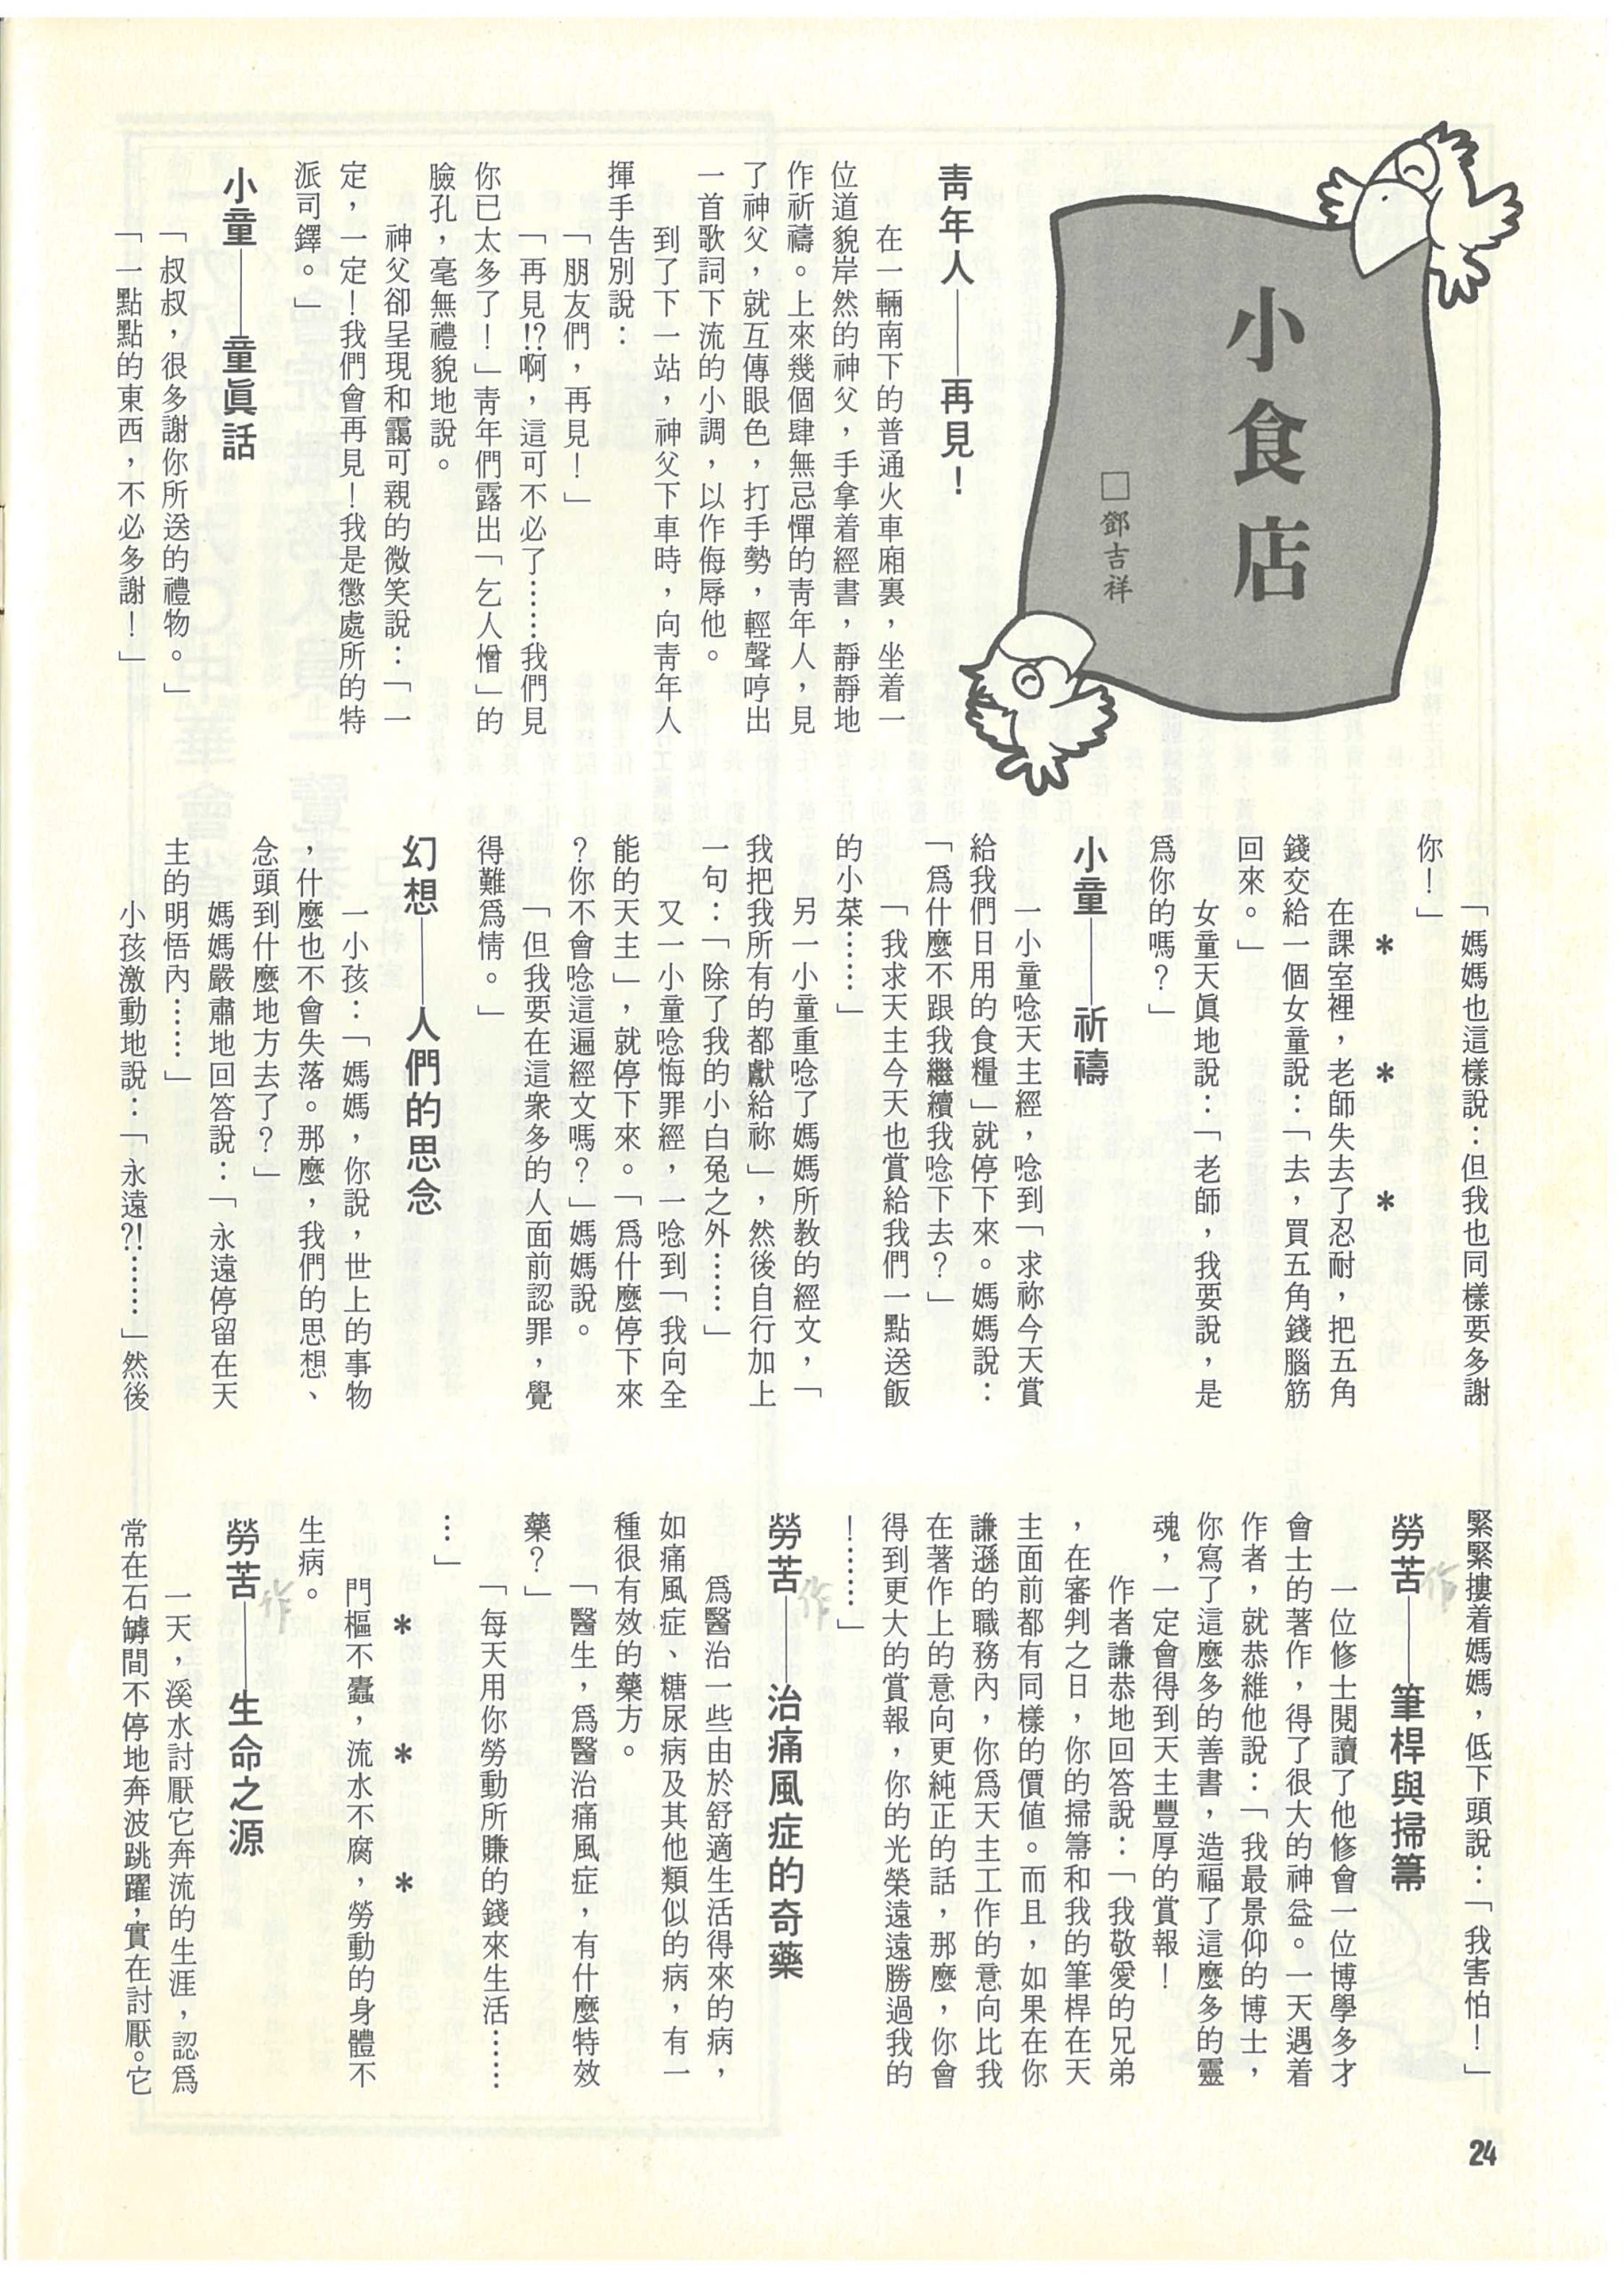 小食店
□鄧吉祥
靑年人——再見！
在一輛南下的普通火車廂裏，坐着一
位道貌岸然的神父，手拿着經書，靜靜地
作祈禱。上來幾個肆無忌憚的靑年人，見
了神父，就互傳眼色，打手勢，輕聲哼出
一首歌詞下流的小調，以作侮辱他。
到了下一站，神父下車時，向靑年人
揮手告別說：
「朋友們，再見！」
「再見!?啊，這可不必了……我們見
你已太多了！」靑年們露出「乞人憎」的
臉孔，毫無禮貌地說。
神父卻呈現和靄可親的微笑說：「一
定，一定！我們會再見！我是懲處所的特
派司鐸。」
小童——童眞話
「叔叔，很多謝你所送的禮物。」
「一點點的東西，不必多謝！」
「媽媽也這樣說：但我也同樣要多謝
你！」
＊　＊　＊
在課室裡，老師失去了忍耐，把五角
錢交給一個女童說：「去，買五角錢腦筋
回來。」
女童天眞地說：「老師，我要說，是
爲你的嗎？」
小童——祈禱
一小童唸天主經，唸到「求祢今天賞
給我們日用的食糧」就停下來。媽媽說：
「爲什麼不跟我繼續我唸下去？」
「我求天主今天也賞給我們一點送飯
的小菜……」
另一小童重唸了媽媽所教的經文，「
我把我所有的都獻給祢」，然後自行加上
一句：「除了我的小白兔之外……」
又一小童唸悔罪經，一唸到「我向全
能的天主」，就停下來。「爲什麼停下來
？你不會唸這遍經文嗎？」媽媽說。
「但我要在這衆多的人面前認罪，覺
得難爲情。」
幻想——人們的思念
一小孩：「媽媽，你說，世上的事物
，什麼也不會失落。那麼，我們的思想、
念頭到什麼地方去了？」
媽媽嚴肅地回答說：「永遠停留在天
主的明悟內……」
小孩激動地說：「永遠?!……」然後
緊緊摟着媽媽，低下頭說：「我害怕！」
勞苦——筆桿與掃箒
作
一位修士閱讀了他修會一位博學多才
會士的著作，得了很大的神益。一天遇着
作者，就恭維他說：「我最景仰的博士，
你寫了這麼多的善書，造福了這麼多的靈
魂，一定會得到天主豐厚的賞報！
作者謙恭地回答說：「我敬愛的兄弟
，在審判之日，你的掃箒和我的筆桿在天
主面前都有同樣的價值。而且，如果在你
謙遜的職務內，你爲天主工作的意向比我
在著作上的意向更純正的話，那麼，你會
得到更大的賞報，你的光榮遠遠勝過我的
！……」
勞苦——治痛風症的奇藥
作
爲醫治一些由於舒適生活得來的病，
如痛風症、糖尿病及其他類似的病，有一
種很有效的藥方。
「醫生，爲醫治痛風症，有什麼特效
藥？」
「每天用你勞動所賺的錢來生活……
…」
＊　＊　＊
門樞不蠹，流水不腐，勞動的身體不
生病。
勞苦——生命之源
作
一天，溪水討厭它奔流的生涯，認爲
常在石罅間不停地奔波跳躍，實在討厭。它
24